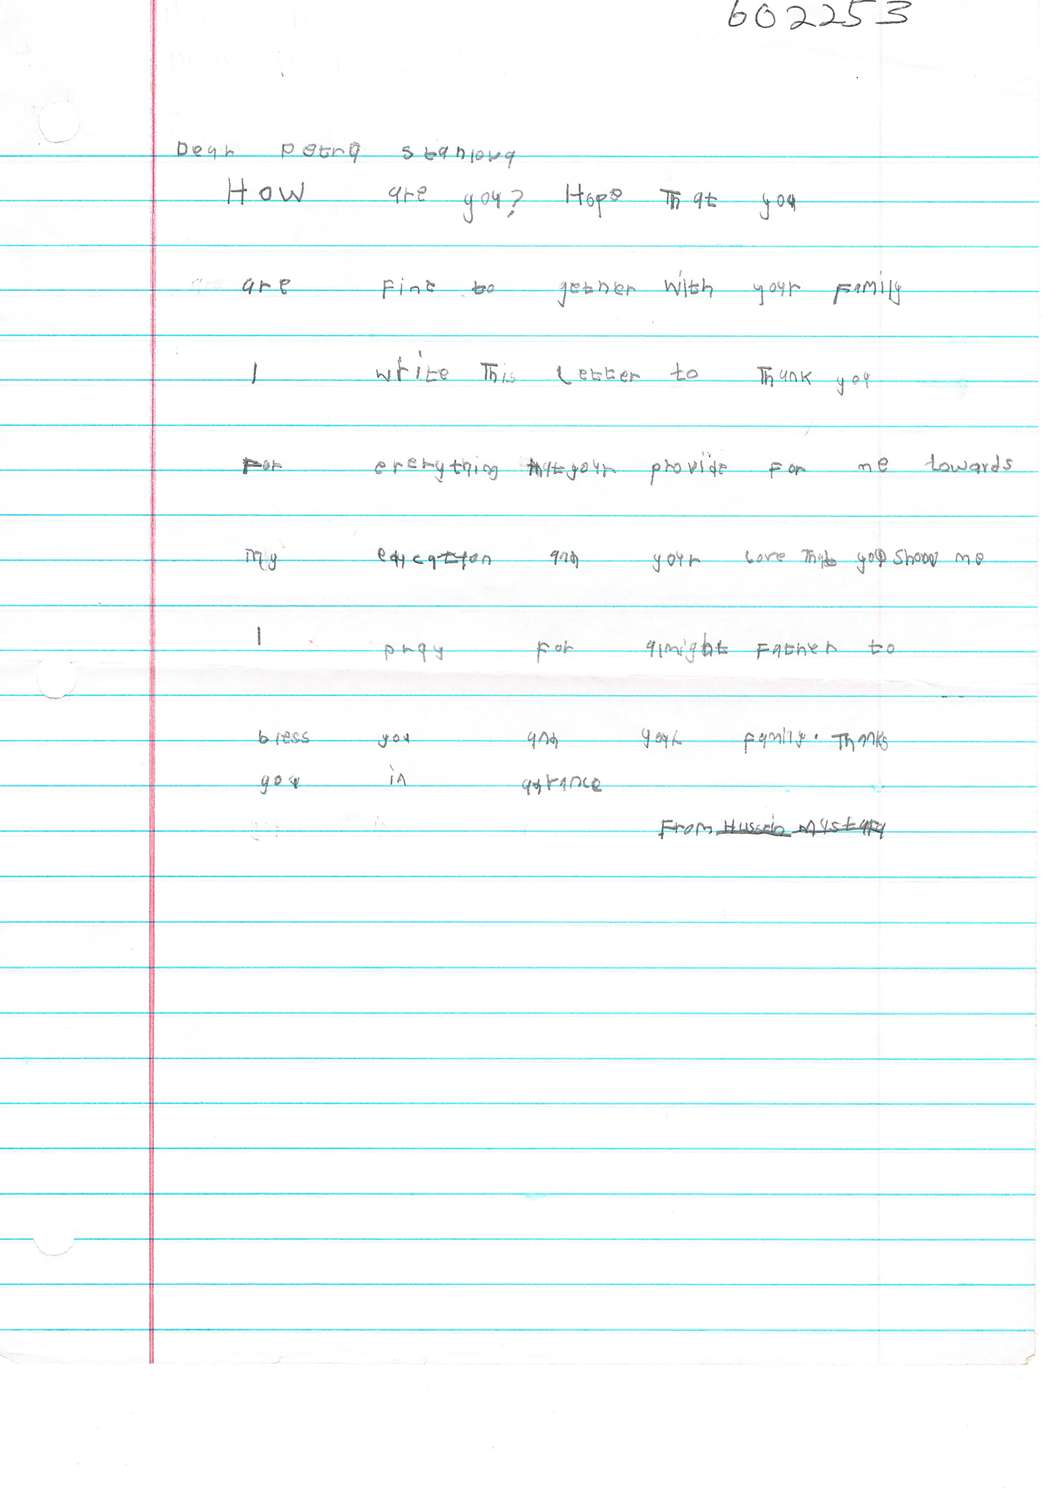 602253
Dear Petra Stanlova
How are you? Hope That you
are Fine to gether with your Family
I write This Letter to Thank you
For everything thatyour provide For me towards
My education and your Love That you Show me
I pray For almight Father to
bless you and your family. Thanks
you in
From Hussein